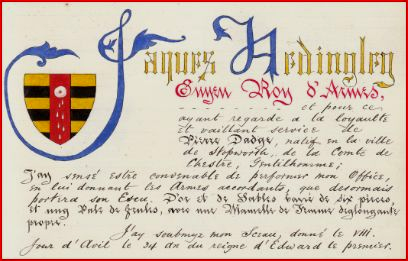 Jaques Hedingley
Guyen Roy d'Armes,
et pour ce
ayant regarde a la loyaulte
et vaillant service de
Pierre Dodge, natif en la ville
de Stopworth, de la Comte de
Chestre, Gentilhomme;
J'ay sensé estre convenable de performer mon Office,
en lui donnant les Armes accordants, que desormais
portera son Escu. D'or et de Sables barré de six pieces,
et ung Pale de Geules, avec une Mamelle de Femme degloutante
propre.
J'ay soubmys mon Sceau, donné le VIII.
Jour d'Avil le 34 an du reigne d'Edward le premier.